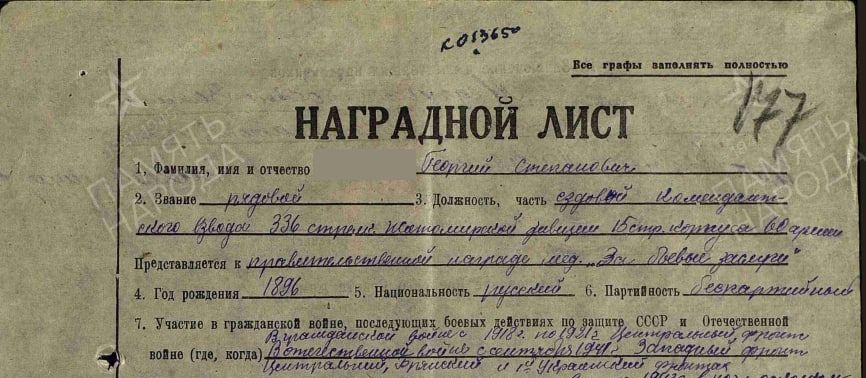 к 053650
Все графы заполнять полностью
177
НАГРАДНОЙ ЛИСТ
1, Фамилия, имя и отчество Георгий Степанович
2. Звание рядовой 3. Должность, часть ездовой комендант-
ского взвода 336 стрелк. Житомирской дивизии 15 стр. корпуса 60 армии
Представляется к правительственной награде мед. „За боевые заслуги“
4. Год рождения 1896 5. Национальность русский 6. Партийность беспартийный
7. Участие в гражданской войне, последующих боевых действиях по защите СССР и Отечественной
В гражданской войне с 1918 г. по 1921 г. Центральный фронт
войне (где, когда) В отечественной войне с сентября 1941 г. Западный фронт
Центральный, Брянский и 1й Украинский фронтах
ПАМЯТЬ НАРОДА
ПАМЯТЬ НАРОДА